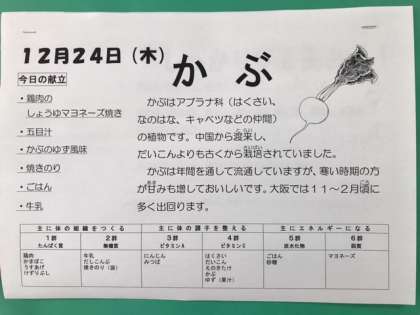 12月24日（木）
かぶ
今日の献立
・鶏肉の
しょうゆマヨネーズ焼き
・五目汁
・かぶのゆず風味
・焼きのり
・ごはん
・牛乳
かぶはアブラナ科（はくさい、
なのはな、キャベツなどの仲間）
の植物です。中国から渡来し、
だいこんよりも古くから栽培されていました。
かぶは年間を通して流通していますが、寒い時期の方
が甘みも増しておいしいです。大阪では11～2月頃に
多く出回ります。
主に体の組織をつくる 主に体の調子を整える 主にエネルギーになる
1群 2群 3群 4群 5群 6群
たんぱく質 無機質 ビタミンA ビタミンC 炭水化物 脂質
鶏肉 牛乳 にんじん はくさい ごはん マヨネーズ
かまぼこ だしこんぶ みつば だいこん 砂糖
うすあげ 焼きのり（袋） えのきたけ
けずりぶし かぶ
ゆず（果汁）